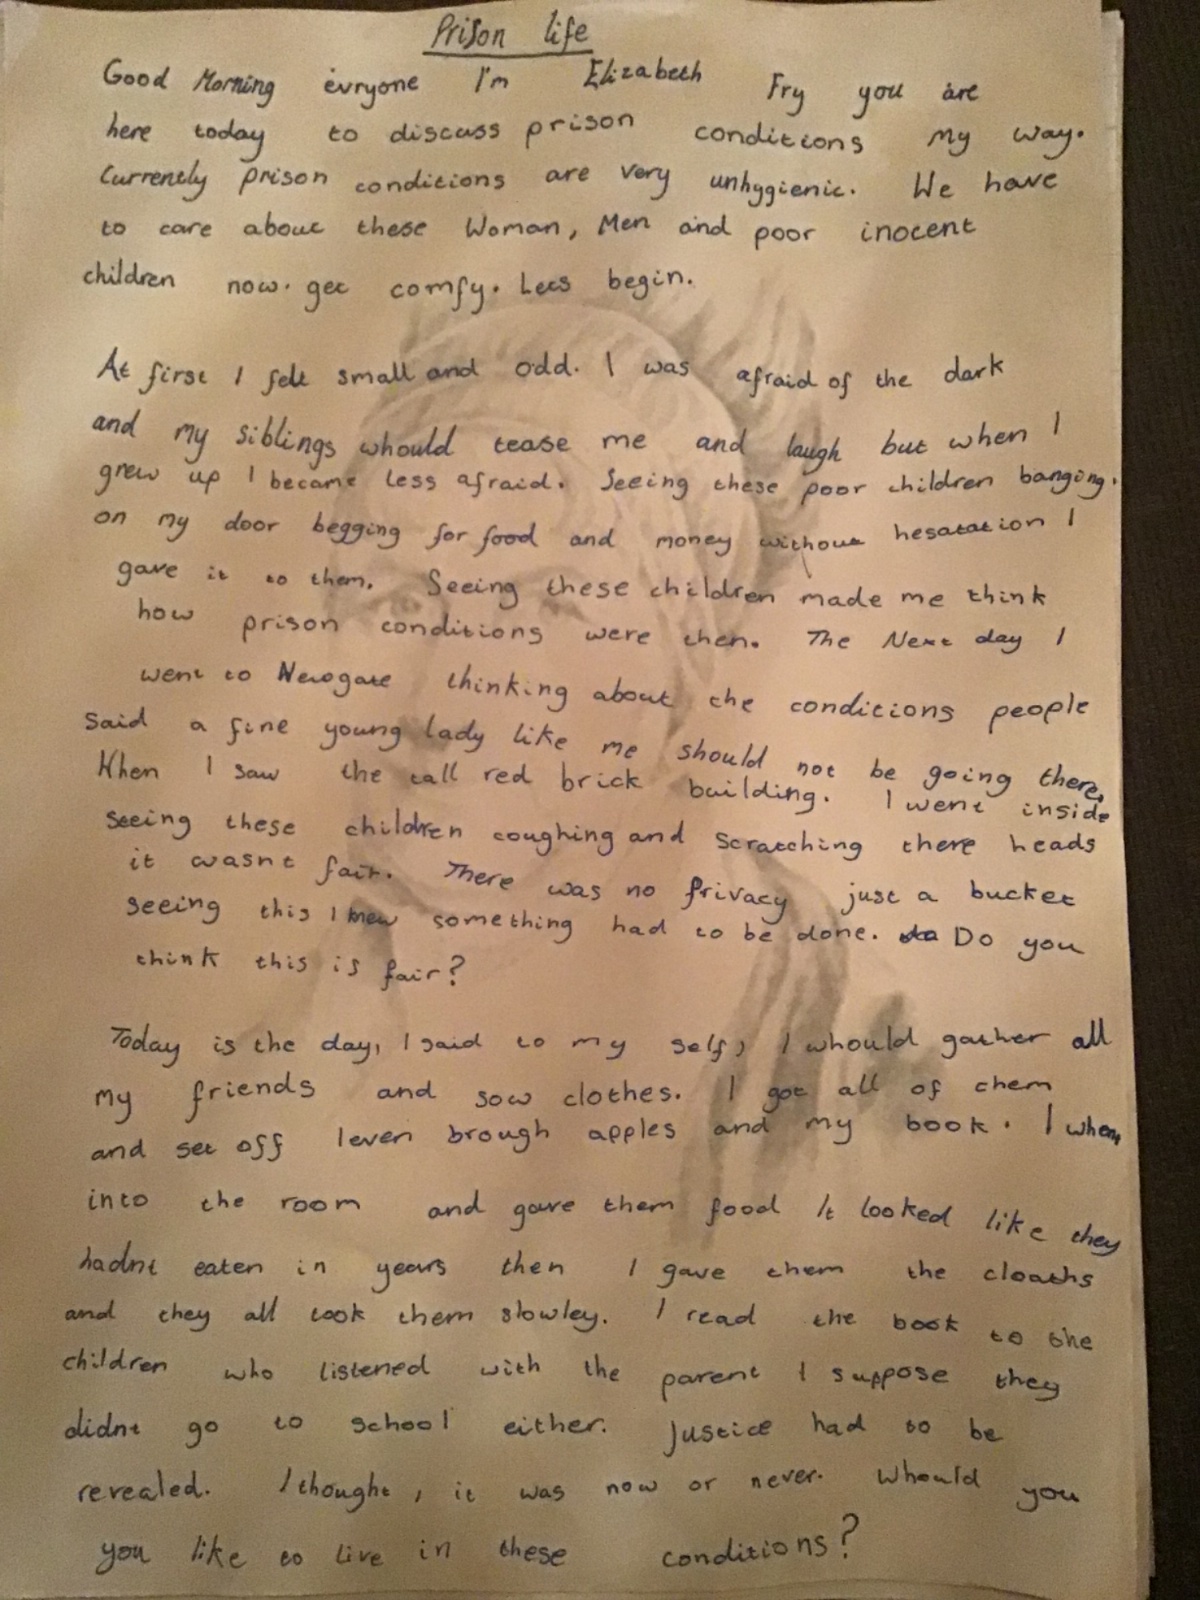 Prison life
Good Morning evryone I'm Elizabeth Fry you are
here today to discuss prison conditions my way.
Currently prison conditions are very unhygienic. We have
to care about these Woman, Men and poor inocent
children now. get comfy. Lets begin.
At first I felt small and odd. I was afraid of the dark
and my siblings whould tease me and laugh but when I
grew up I became less afraid. Seeing these poor children banging.
on my door begging for food and money without hesatation I
gave it to them. Seeing these children made me think
how prison conditions were then. The Next day I
went to Newgate thinking about the conditions people
said a fine young lady like me should not be going there.
When I saw the tall red brick building. I went inside
seeing these children coughing and scratching there heads
it wasnt fair. There was no privacy just a bucket
seeing this I knew something had to be done. Do you
think this is fair?
Today is the day, I said to my self, I whould gather all
my friends and sow clothes. I got all of them
and set off Ieven brough apples and my book. I when
into the room and gave them food It looked like they
hadnt eaten in years then I gave them the cloaths
and they all took them slowley. I read the book to the
children who listened with the parent I suppose they
didnt go to school either. Justice had to be
revealed. I thought, it was now or never. Whould you
you like to live in these conditions?